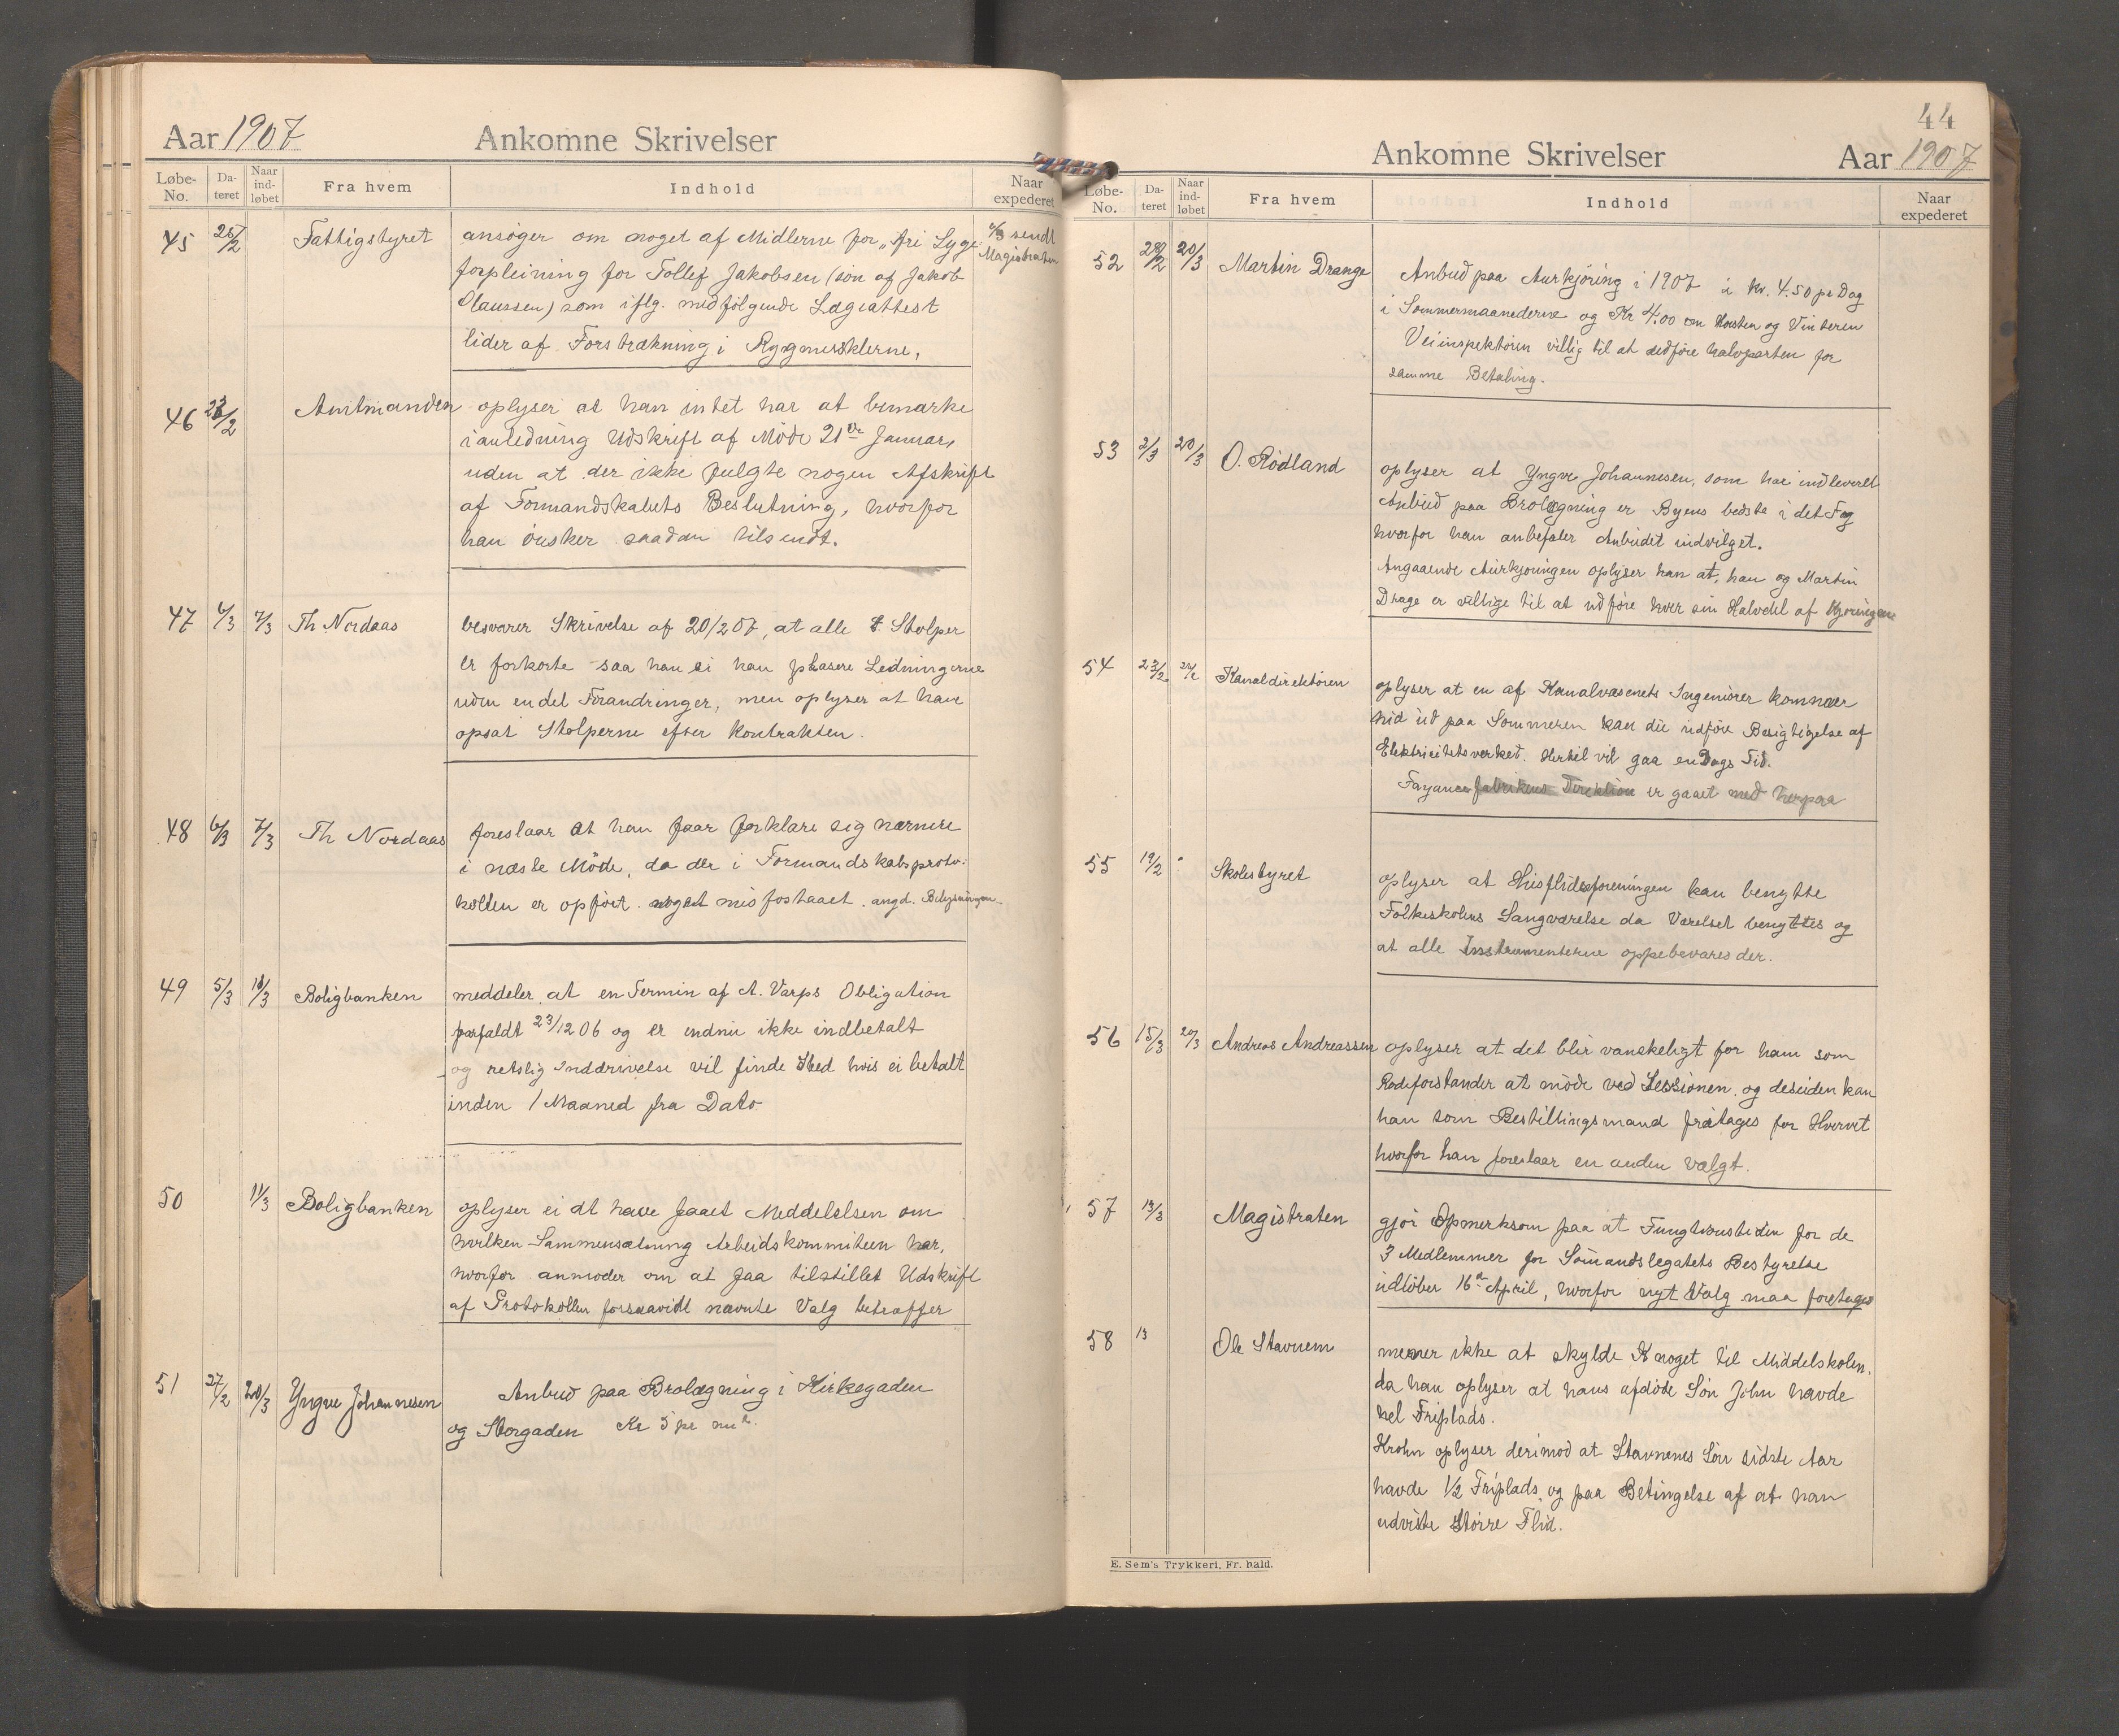 Aar 1907 Ankomne Skrivelser
Løbe-No. Da-teret Naar ind-løbet Fra hvem Indhold Naar expederet
45 25/2 Fattigstyret ansøger om noget af Midlerne for „fri Syge 4/3 sendt
forpleining for Tollef Jakobsen (søn af Jakob Magistraten
Olaussen) som iflg. medfølgende Lægeattest
lider af Forstrækning i Rygmusklerne.
46 23/2 Amtmanden oplyser at han intet har at bemærke
i anledning Udskrift af Møde 21de Januar,
uden at der ikke fulgte nogen Afskrift
af Formandskabets Beslutning, hvorfor
han ønsker saadan tilsendt.
47 6/3 7/3 Th Nordaas besvarer Skrivelse af 20/2 07, at alle Stolper
er forkorte saa han ei kan plasere Ledningerne
uden endel Forandringer, men oplyser at have
opsat Stolperne efter Kontrakten.
48 6/3 7/3 Th Nordaas foreslaar at han faar forklare sig nærmere
i næste Møde, da der i Formandskabsproto-
kollen er opført noget misforstaaet angd. Belysningen
49 5/3 11/3 Boligbanken meddeler at en Termin af A. Varps Obligation
forfaldt 23/12 06 og er endnu ikke indbetalt
og retslig Inddrivelse vil finde Sted hvis ei betalt
inden 1 Maaned fra Dato
50 11/3 Boligbanken oplyser ei at have faaet Meddelelsen om
hvilken Sammensætning Arbeidskommiteen har,
hvorfor anmoder om at faa tilstillet Udskrift
af Protokollen forsaavidt nævnte Valg betræffer
51 27/2 20/3 Yngve Johannesen Anbud paa Brolægning i Kirkegaden
og Storgaden Kr 5 pr m2.
44
Ankomne Skrivelser Aar 1907
Løbe-No. Da-teret Naar ind-løbet Fra hvem Indhold Naar expederet
52 28/2 20/3 Martin Drange Anbud paa Aurkjøring i 1907 á kr. 4.50 pr Dag
i Sommermaanederne og Kr 4.00 om Høsten og Vinteren
Veiinspektøren villig til at udføre halvparten for
samme Betaling.
53 2/3 20/3 O. Rødland oplyser at Yngve Johannesen, som har indleveret
Anbud paa Brolægning er Byens bedste i det Fag
hvorfor han anbefaler Anbudet indvilget.
Angaaende Aurkjøringen oplyser han at, han og Martin
Drage er villige til at udføre hver sin Halvdel af Kjøringen
54 23/2 Kanaldirektøren oplyser at en af Kanalvæsenets Ingeniører kommer
hid ud paa Sommeren kan die udføre Besigtigelse af
Elektricitetsverket. Hertil vil gaa en Dags Tid.
Fayance fabrikens Direktion er gaaet med herpaa
55 19/2 Skolestyret oplyser at Husflidsforeningen kan benytte
Folkeskolens Sangværelse da Værelset benyttes og
at alle Instrumenterne oppebevares der.
56 15/3 20/3 Andreas Andreassen oplyser at det blir vanskeligt for ham som
Rodeforstander at møde ved Sessionen og desuden kan
han som Bestillingsmand fritages for Hvervet
hvorfor han foreslaar en anden valgt.
57 13/3 Magistraten gjør Opmerksom paa at Funglionstiden for de
3 Medlemmer for Sømandslegatets Bestyrelse
udløber 16de April, hvorfor nyt Valg maa foretages
58 13 Ole Stavnem mener ikke at skylde noget til Middelskolen,
da han oplyser at hans afdøde Søn John havde
hel Friplads.
Krohn oplyser derimod at Stavnems Søn sidste Aar
havde 1/2 Friplads og paa Betingelse af at han
udviste Større Flid.
E. Sem's Trykkeri, Fr. hald.